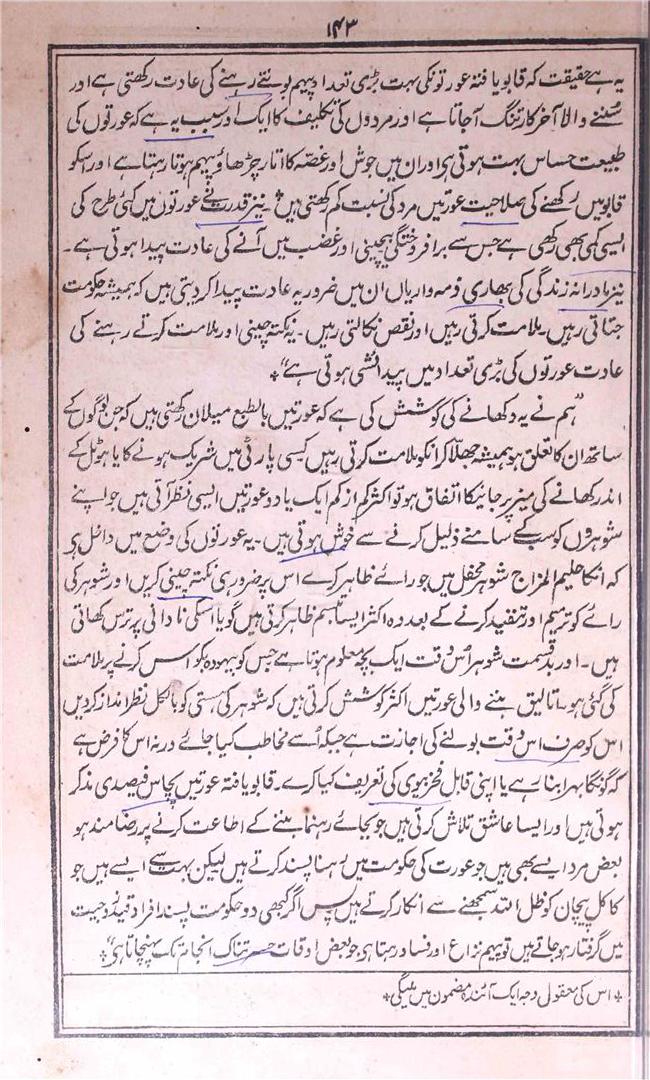 ۱۴۳
یہ ہے حقیقت کہ قابو یافتہ عورتونکی بہت بڑی تعداد پیہم بولتے رہنے کی عادت رکھتی ہے اور
سُننے والا آخر کار تنگ آجاتا ہے اور مردوں کی تکلیف کا ایک اور سبب یہ ہے کہ عورتوں کی
طبیعت حساس بہت ہوتی ہی اور ان میں جوش اور غصّہ کا اتار چڑھاؤ پیہم ہوتا رہتا ہے اور اسکو
قابو میں رکھنے کی صلاحیت عورتیں مرد کی نسبت کم رکھتی ہیں نیز قدرت نے عورتوں میں کئی طرح کی
ایسی کمی بھی رکھی ہے جس سے برافروختگی بیچینی اور غضب میں آنے کی عادت پیدا ہوتی ہے۔
نیز مادرانہ زندگی کی بھاری ذمہ واریاں ان میں ضرور یہ عادت پیدا کردیتی ہیں کہ ہمیشہ حکومت
جتاتی رہیں۔ ملامت کرتی رہیں اور نقص نکالتی رہیں۔ یہ نکتہ چینی اور ملامت کرتے رہنے کی
عادت عورتوں کی بڑی تعداد میں پیدائشی ہوتی ہے“*
”ہم نے یہ دکھانے کی کوشش کی ہے کہ عورتیں بالطبع میلان رکھتی ہیں کہ جن لوگوں کے
ساتھ ان کا تعلق ہو ہمیشہ جھلّا کر انکو ملامت کرتی رہیں کسی پارٹی میں شریک ہونے کا یا ہوٹل کے
اندر کھانے کی میز پر جانیکا اتفاق ہو تو اکثر کم از کم ایک یا دو عورتیں ایسی نظر آتی ہیں جو اپنے
شوہروں کو سب کے سامنے ذلیل کرنے سے خوش ہوتی ہیں۔ یہ عورتوں کی وضع میں داخل ہی
کہ انکا حلیم المزاج شوہر محفل میں جو رائے ظاہر کرے اس پر ضرور ہی نکتہ چینی کریں اور شوہر کی
رائے کو ترمیم اور تنقید کرنے کے بعد وہ اکثر ایسا تبسم ظاہر کرتی ہیں گویا اسکی نادانی پر ترس کھاتی
ہیں۔ اور بدقسمت شوہر اُس وقت ایک بچہ معلوم ہوتا ہے جس کو بیہودہ بکواس کرنے پر ملامت
کی گئی ہو۔ اتالیق بننے والی عورتیں اکثر کوشش کرتی ہیں کہ شوہر کی ہستی کو بالکل نظر انداز کردیں
اس کو صرف اس وقت بولنے کی اجازت ہے جبکہ اُسے مخاطب کیا جائے ورنہ اس کا فرض ہے
کہ گونگا بہرا بنا رہے یا اپنی قابل فخر بیوی کی تعریف کیا کرے۔ قابو یافتہ عورتیں پچاس فیصدی مذکر
ہوتی ہیں اور ایسا عاشق تلاش کرتی ہیں جو بجائے رہنما بننے کے اطاعت کرنے پر رضامند ہو
بعض مرد ایسے بھی ہیں جو عورت کی حکومت میں رہنا پسند کرتے ہیں لیکن بہت سے ایسے ہیں جو
کاکل پیچان کو ظل اللہ سمجھنے سے انکار کرتے ہیں پس اگر کبھی دو حکومت پسند افراد قید زوجیت
میں گرفتار ہو جاتے ہیں تو پیہم نزاع اور فساد رہتا ہی جو بعض اوقات حسرتناک انجام تک پہنچاتا ہی“*
* اس کی معقول وجہ ایک آئندہ مضمون میں ملیگی*